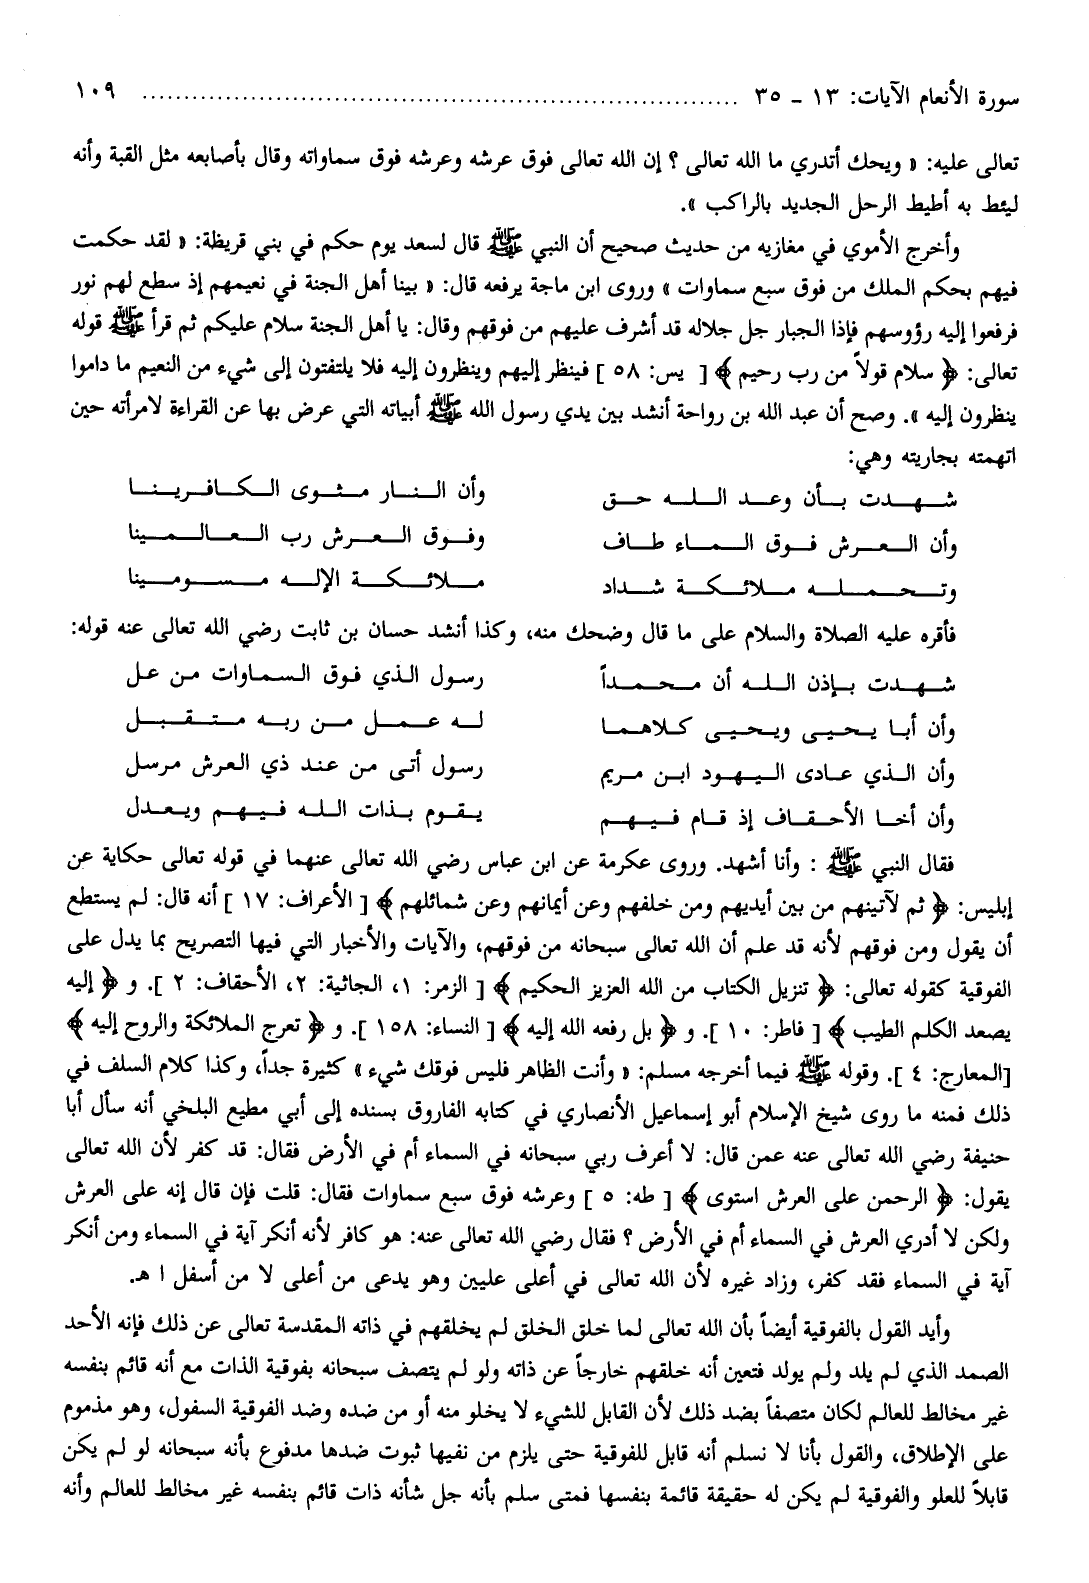 سورة الأنعام الآيات: ١٣ - ٣٥ .................................................................... ١٠٩
تعالى عليه: « ويحك أتدري ما الله تعالى ؟ إن الله تعالى فوق عرشه وعرشه فوق سماواته وقال بأصابعه مثل القبة وأنه
ليئط به أطيط الرحل الجديد بالراكب ».
وأخرج الأموي في مغازيه من حديث صحيح أن النبي ﷺ قال لسعد يوم حكم في بني قريظة: « لقد حكمت
فيهم بحكم الملك من فوق سبع سماوات » وروى ابن ماجة يرفعه قال: « بينا أهل الجنة في نعيمهم إذ سطع لهم نور
فرفعوا إليه رؤوسهم فإذا الجبار جل جلاله قد أشرف عليهم من فوقهم وقال: يا أهل الجنة سلام عليكم ثم قرأ ﷺ قوله
تعالى: ﴿ سلام قولاً من رب رحيم ﴾ [ يس: ٥٨ ] فينظر إليهم وينظرون إليه فلا يلتفتون إلى شيء من النعيم ما داموا
ينظرون إليه ». وصح أن عبد الله بن رواحة أنشد بين يدي رسول الله ﷺ أبياته التي عرض بها عن القراءة لامرأته حين
اتهمته بجاريته وهي:
شهدت بأن وعد الله حق وأن النار مثوى الكافرينا
وأن العرش فوق الماء طاف وفوق العرش رب العالمينا
وتحمله ملائكة شداد ملائكة الإله مسومينا
فأقره عليه الصلاة والسلام على ما قال وضحك منه، وكذا أنشد حسان بن ثابت رضي الله تعالى عنه قوله:
شهدت بإذن الله أن محمداً رسول الذي فوق السماوات من عل
وأن أبا يحيى ويحيى كلاهما له عمل من ربه متقبل
وأن الذي عادى اليهود ابن مريم رسول أتى من عند ذي العرش مرسل
وأن أخا الأحقاف إذ قام فيهم يقوم بذات الله فيهم ويعدل
فقال النبي ﷺ : وأنا أشهد. وروى عكرمة عن ابن عباس رضي الله تعالى عنهما في قوله تعالى حكاية عن
إبليس: ﴿ ثم لآتينهم من بين أيديهم ومن خلفهم وعن أيمانهم وعن شمائلهم ﴾ [ الأعراف: ١٧ ] أنه قال: لم يستطع
أن يقول ومن فوقهم لأنه قد علم أن الله تعالى سبحانه من فوقهم، والآيات والأخبار التي فيها التصريح بما يدل على
الفوقية كقوله تعالى: ﴿ تنزيل الكتاب من الله العزيز الحكيم ﴾ [ الزمر: ١، الجاثية: ٢، الأحقاف: ٢ ]. و ﴿ إليه
يصعد الكلم الطيب ﴾ [ فاطر: ١٠ ]. و ﴿ بل رفعه الله إليه ﴾ [ النساء: ١٥٨ ]. و ﴿ تعرج الملائكة والروح إليه ﴾
[المعارج: ٤ ]. وقوله ﷺ فيما أخرجه مسلم: « وأنت الظاهر فليس فوقك شيء » كثيرة جداً، وكذا كلام السلف في
ذلك فمنه ما روى شيخ الإسلام أبو إسماعيل الأنصاري في كتابه الفاروق بسنده إلى أبي مطيع البلخي أنه سأل أبا
حنيفة رضي الله تعالى عنه عمن قال: لا أعرف ربي سبحانه في السماء أم في الأرض فقال: قد كفر لأن الله تعالى
يقول: ﴿ الرحمن على العرش استوى ﴾ [ طه: ٥ ] وعرشه فوق سبع سماوات فقال: قلت فإن قال إنه على العرش
ولكن لا أدري العرش في السماء أم في الأرض ؟ فقال رضي الله تعالى عنه: هو كافر لأنه أنكر آية في السماء ومن أنكر
آية في السماء فقد كفر، وزاد غيره لأن الله تعالى في أعلى عليين وهو يدعى من أعلى لا من أسفل ا هـ.
وأيد القول بالفوقية أيضاً بأن الله تعالى لما خلق الخلق لم يخلقهم في ذاته المقدسة تعالى عن ذلك فإنه الأحد
الصمد الذي لم يلد ولم يولد فتعين أنه خلقهم خارجاً عن ذاته ولو لم يتصف سبحانه بفوقية الذات مع أنه قائم بنفسه
غير مخالط للعالم لكان متصفاً بضد ذلك لأن القابل للشيء لا يخلو منه أو من ضده وضد الفوقية السفول، وهو مذموم
على الإطلاق، والقول بأنا لا نسلم أنه قابل للفوقية حتى يلزم من نفيها ثبوت ضدها مدفوع بأنه سبحانه لو لم يكن
قابلاً للعلو والفوقية لم يكن له حقيقة قائمة بنفسها فمتى سلم بأنه جل شأنه ذات قائم بنفسه غير مخالط للعالم وأنه